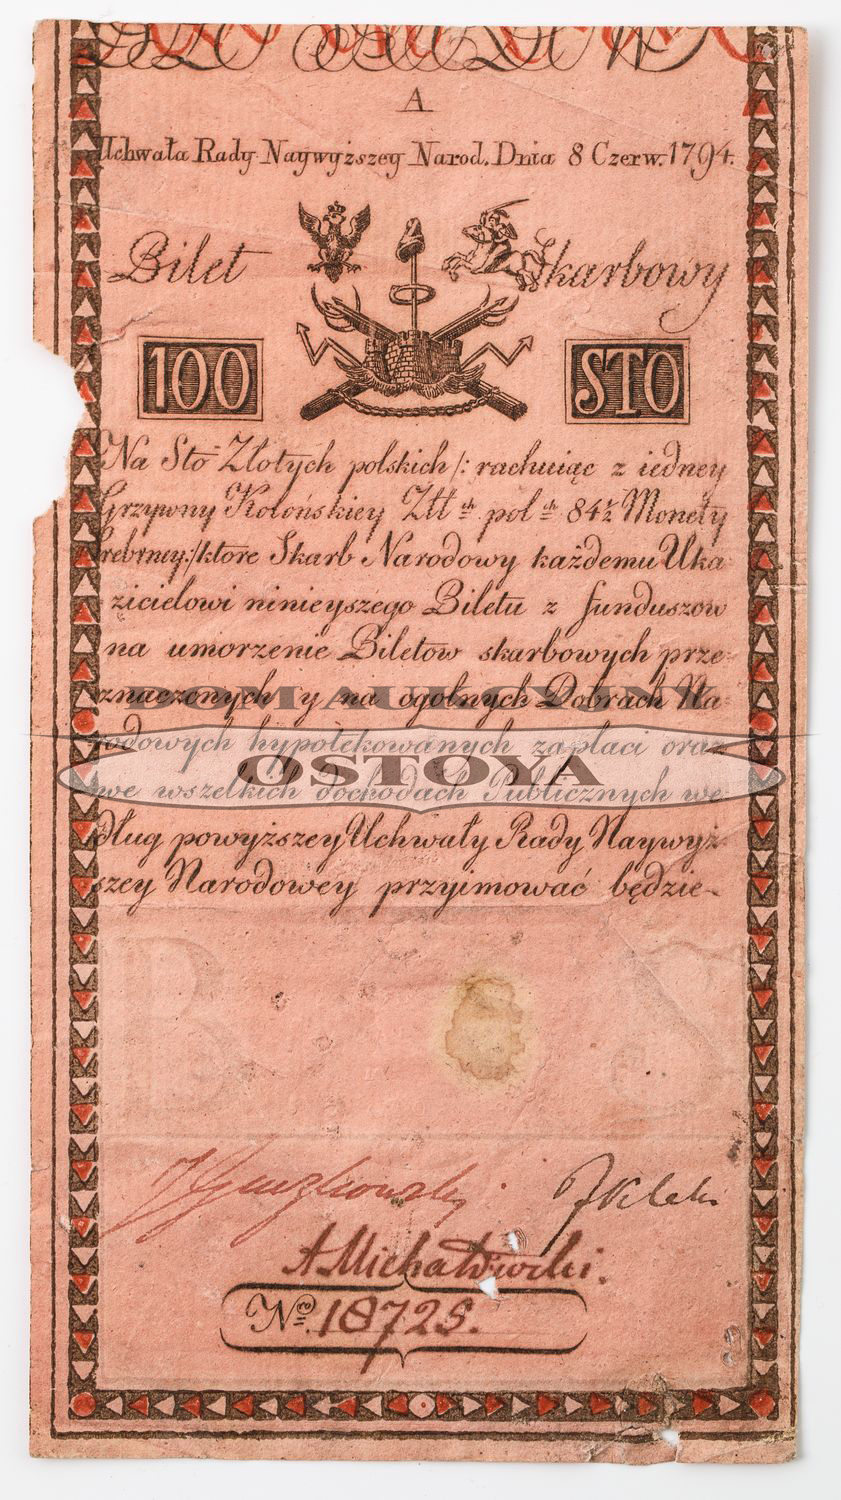 A
Uchwała Rady Naywyższey Narod. Dnia 8 Czerw. 1794.
Bilet Skarbowy
100 STO
Na Sto Złotych polskich /: rachuiąc z iedney
Grzywny Kolońskiey Złł ch pol ch 84½ Monety
Srebrney :/ ktore Skarb Narodowy każdemu Uka
zicielowi ninieyszego Biletu z funduszow
na umorzenie Biletow skarbowych prze-
znaczonych y na ogolnych Dobrach Na-
DOM AUKCYJNY
rodowych hypotekowanych zapłaci oraz
OSTOYA
we wszelkich dochodach Publicznych we-
dług powyższey Uchwały Rady Naywyż-
szey Narodowey przyimować będzie-
B S
A Michałowski.
No. 18725.